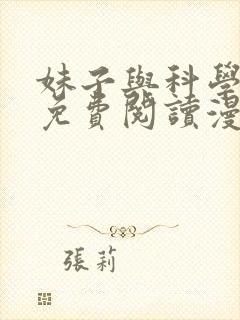 妹子與科學
免費閱讀漫
張莉